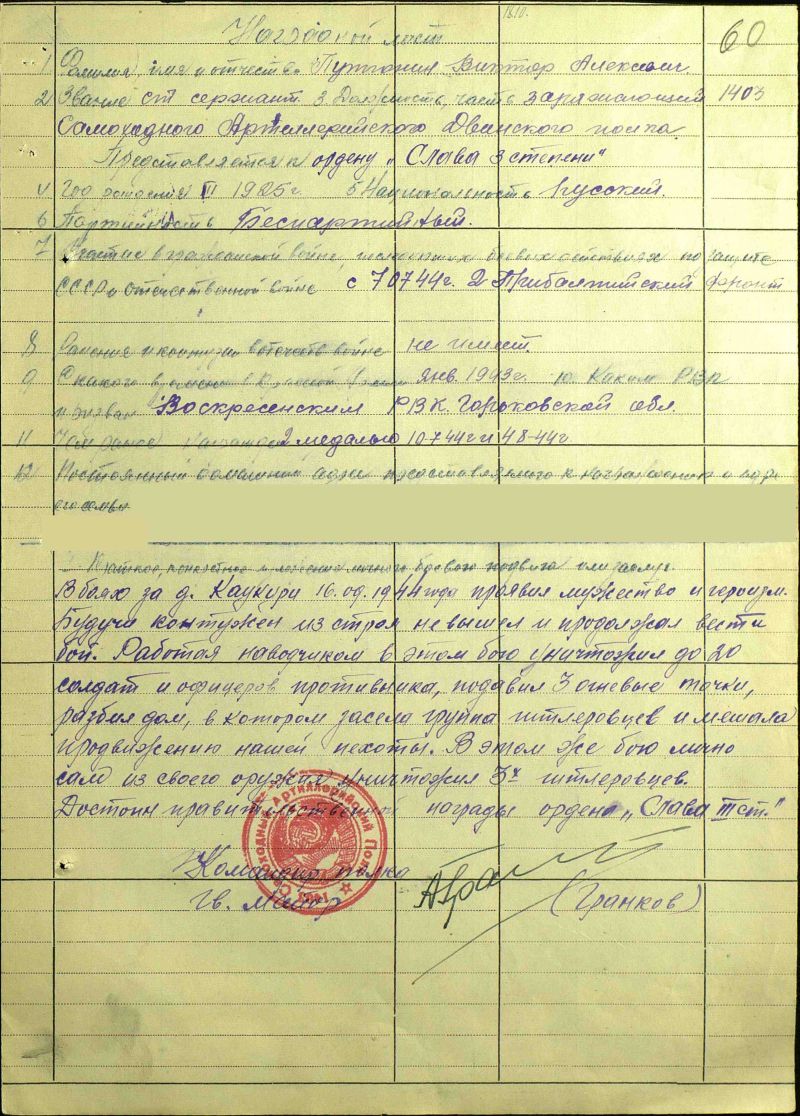 18.10.
60
Наградной лист
1 Фамилия, имя и отчество Виктор Алексеич.
2 Звание ст сержант. 3 Должность, часть заряжающий 1403
Самоходного Артиллерийского Двинского полка.
Представляется к ордену „Слава 3 степени"
4 Год рождения 1925г. 5 Национальность Русский.
6 Партийность Беспартийный.
7 Участие в гражданской войне, последующих боевых действиях по защите
СССР и отечественной войне с 10744г. 2 Прибалтийский фронт
8 Ранения и контузии в отечеств войне не имеет.
9 С какого времени в Красной Армии янв. 1943г. 10 Каким РВК
призван Воскресенским РВК. Горьковской обл.
11 Чем ранее награжден 2 медалью 10744г и 4844г.
12 Постоянный домашний адрес представляемого к награждению и адр
его семьи
Краткое, конкретное изложение личного боевого подвига или заслуг.
В боях за д. Каукури 16.09.1944 года проявил мужество и героизм.
Будучи контужен из строя не вышел и продолжал вести
бой. Работая наводчиком в этом бою уничтожил до 20
солдат и офицеров противника, подавил 3 огневые точки,
разбил дом, в котором засела группа гитлеровцев и мешала
продвижению нашей пехоты. В этом же бою лично
сам из своего оружия уничтожил 3х гитлеровцев.
Достоин правительственной награды ордена „Слава III ст."
Командир полка
Гв. Майор (Гранков)
Самоходный Артиллерийский Полк